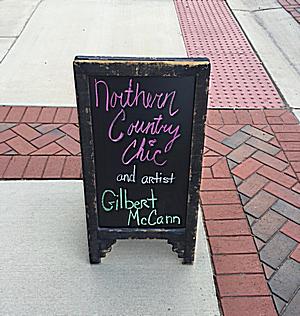 Northern
Country
Chic
and artist
Gilbert
McCann